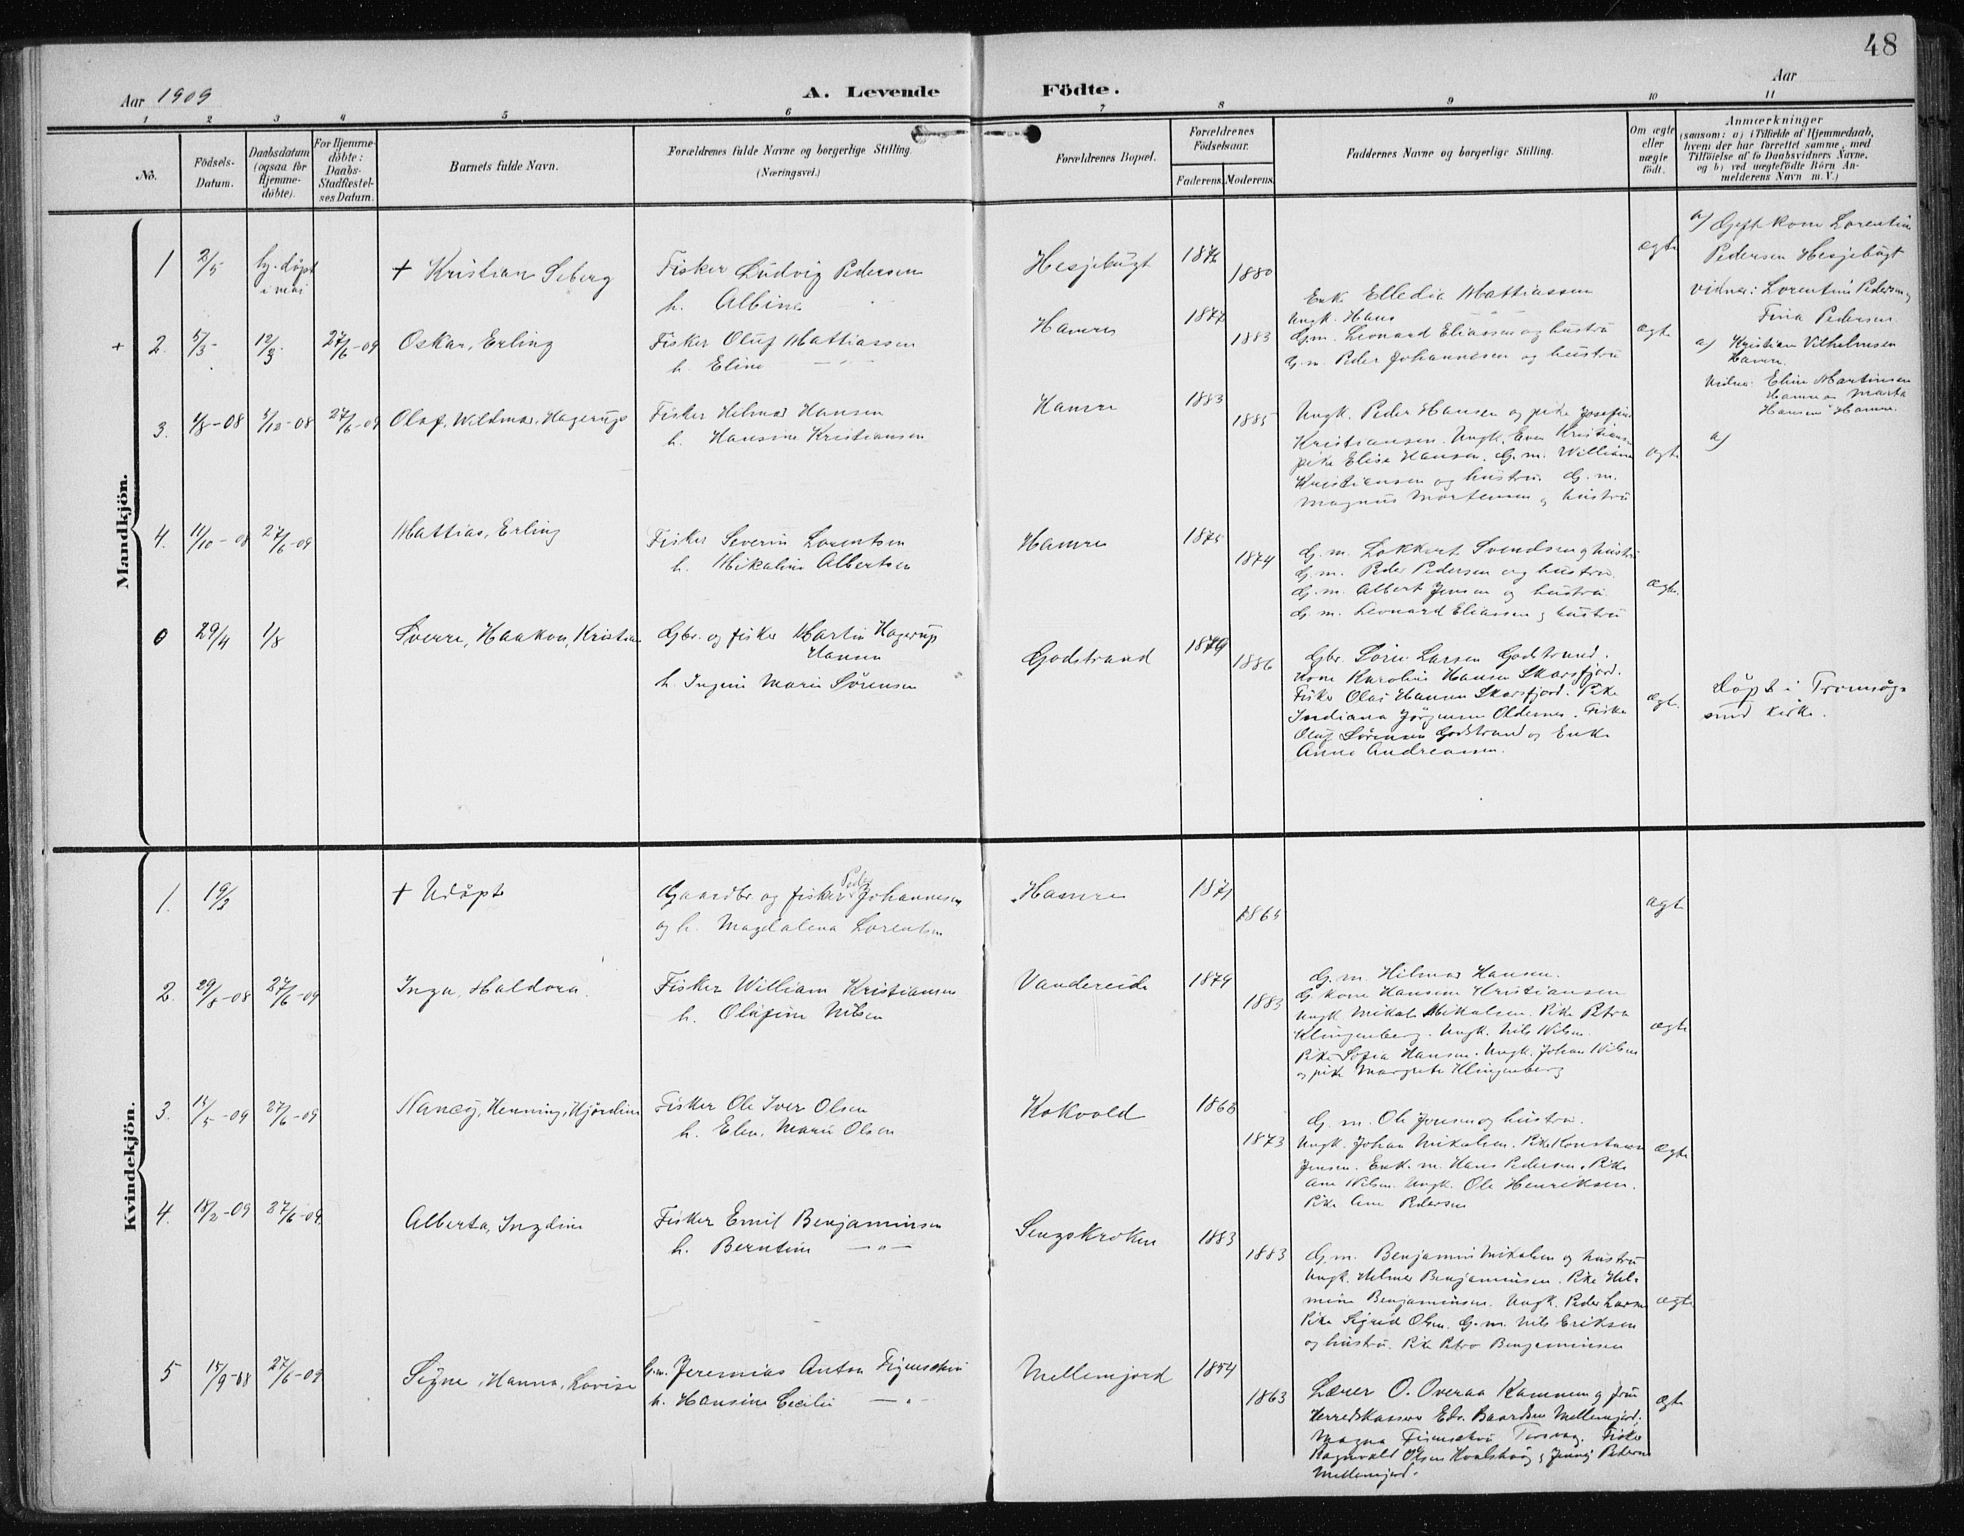 48
Aar 1909
A. Levende Födte.
Aar
1 2 3 4 5 6 7 8 9 10 11
No.
Födsels-Datum.
Daabsdatum (ogsaa for Hjemmedöbte).
For Hjemmedöbte: Daabs-Stadfæstelses Datum.
Barnets fulde Navn.
Forældrenes fulde Navne og borgerlige Stilling
(Næringsvei.)
Forældrenes Bopæl.
Forældrenes Födselsaar.
Faderens. Moderens.
Faddernes Navne og borgerlige Stilling.
Om ægte eller uægte födt.
Anmærkninger
(saasom: a) i Tilfælde af Hjemmedaab,
hvem der har forrettet samme, med
Tilföielse af to Daabsvidners Navne,
og b) ved uægtefödte Börn Anmelderens Navn m. V.)
Mandkjön.
1 2/5 hj. døpt i mai + Kristian Seberg
Fisker Ludvig Pedersen
h. Albine
Hesjebugt 1880 ægte
a) Gift kone
Pedersen Hesjebugt
vidner:
Fina Pedersen
+ 2. 5/3 12/3 27/6-09 Oskar, Erling
Fisker Oluf Mattiassen
h. Eline
Hamre 1877 1883
Enke Elledia Mattiassen
Ungk. Hans
G.m. Leonard Eliassen og hustru
G.m. Peder Johannesen og hustru
ægte
a) Kristian Vilhelmsen
Hamre.
Vidner: Eline Martinsen
Hamre og Marta
Hansen Hamre.
3. 4/8-08 27/6-09 Olaf, Wildmar, Hagerup
Fisker Helmer Hansen
h. Hansine Kristiansen
Hamre 1883 1885
Ungk. Peder Hansen og pike Josefine
Kristiansen. Ungk. Even Kristiansen
pike Elise Hansen. G.m. William
Kristiansen og hustru. G.m.
Magnus Mortensen og hustru
ægte
a)
4. 11/10-08 27/6-09 Mattias, Erling
Fisker Severin Lorentsen
h. Mikaline Albertsen
Hamre 1875 1874
G.m. Lokkert Svendsen og hustru
G.m. Peder Pedersen og hustru.
G.m. Albert Jensen og hustru
G.m. Leonard Eliassen og hustru
ægte
0 29/4 1/8 Sverre, Haakon, Kristian
Gbr. og fisker Martin Hagerup
Hansen
h. Ingine Marie Sørensen
Godstrand 1879 1886
Gbr. Søren Larsen Godstrand.
Kone Karoline Hansen Skarsfjord.
Fisker Olai Hansen Skarsfjord. Pike
Indiana Jørgensen Oldernes. Fisker
Oluf Sørensen Godstrand og Enke
Anne Andreassen.
ægte
Døpt i Tromsøy
sund kirke.
Kvindekjön.
1. 19/3 + Udøpt
Gaardbr. og fisker Peder Johannesen
og h. Magdalena Lorentsen
Hamre 1871 1865 ægte
2. 29/8-08 27/6-09 Inga, Haldora.
Fisker William Kristiansen
h. Olufine Nilsen
Vandereide 1879 1883
G.m. Hilmar Hansen.
G. kone Hansine Kristiansen
Ungk. Mikal Mikalsen. Pike Petra
Klingenberg. Ungk. Nils Nilsen.
Pike Sofia Hansen. Ungk. Johan Nilsen
og pike Margrete Klingenberg
ægte
3. 14/5-09 27/6-09 Nancy, Henning, Hjördine
Fisker Ole Iver Olsen
h. Elen, Marie Olsen
Kokvold 1868 1873
G.m. Ole Jensen og hustru.
Ungk. Johan Mikalsen. Pike Konstanse
Jensen. Enk. m. Hans Pedersen. Pike
Ane Nilsen. Ungk. Ole Henriksen.
Pike Ane Pedersen
ægte
4. 18/2-09 27/6-09 Alberta, Ingdine
Fisker Emil Benjaminsen
h. Berntine — " —
Sengskroken 1883 1883
G.m. Benjamin Mikalsen og hustru
Ungk. Helmer Benjaminsen. Pike Helmine
Benjaminsen. Ungk. Peder Larsen
Pike Sigrid Olsen. G.m. Nils Eriksen
og hustru. Pike Petra Benjaminsen
ægte
5 15/9-08 27/6-09 Signe, Hanna, Lovise
G.m. Jeremias Anton
h. Hansine Cecilie — " —
Mellemjord 1854 1863
Lærer O. Overaa Kammen og fru
Herredskasserer Edv. Baardsen Mellemjord.
Magna Torsvaag. Fisker
Ragnvald Olsen og Jenny Pedersen
Mellemjord.
ægte